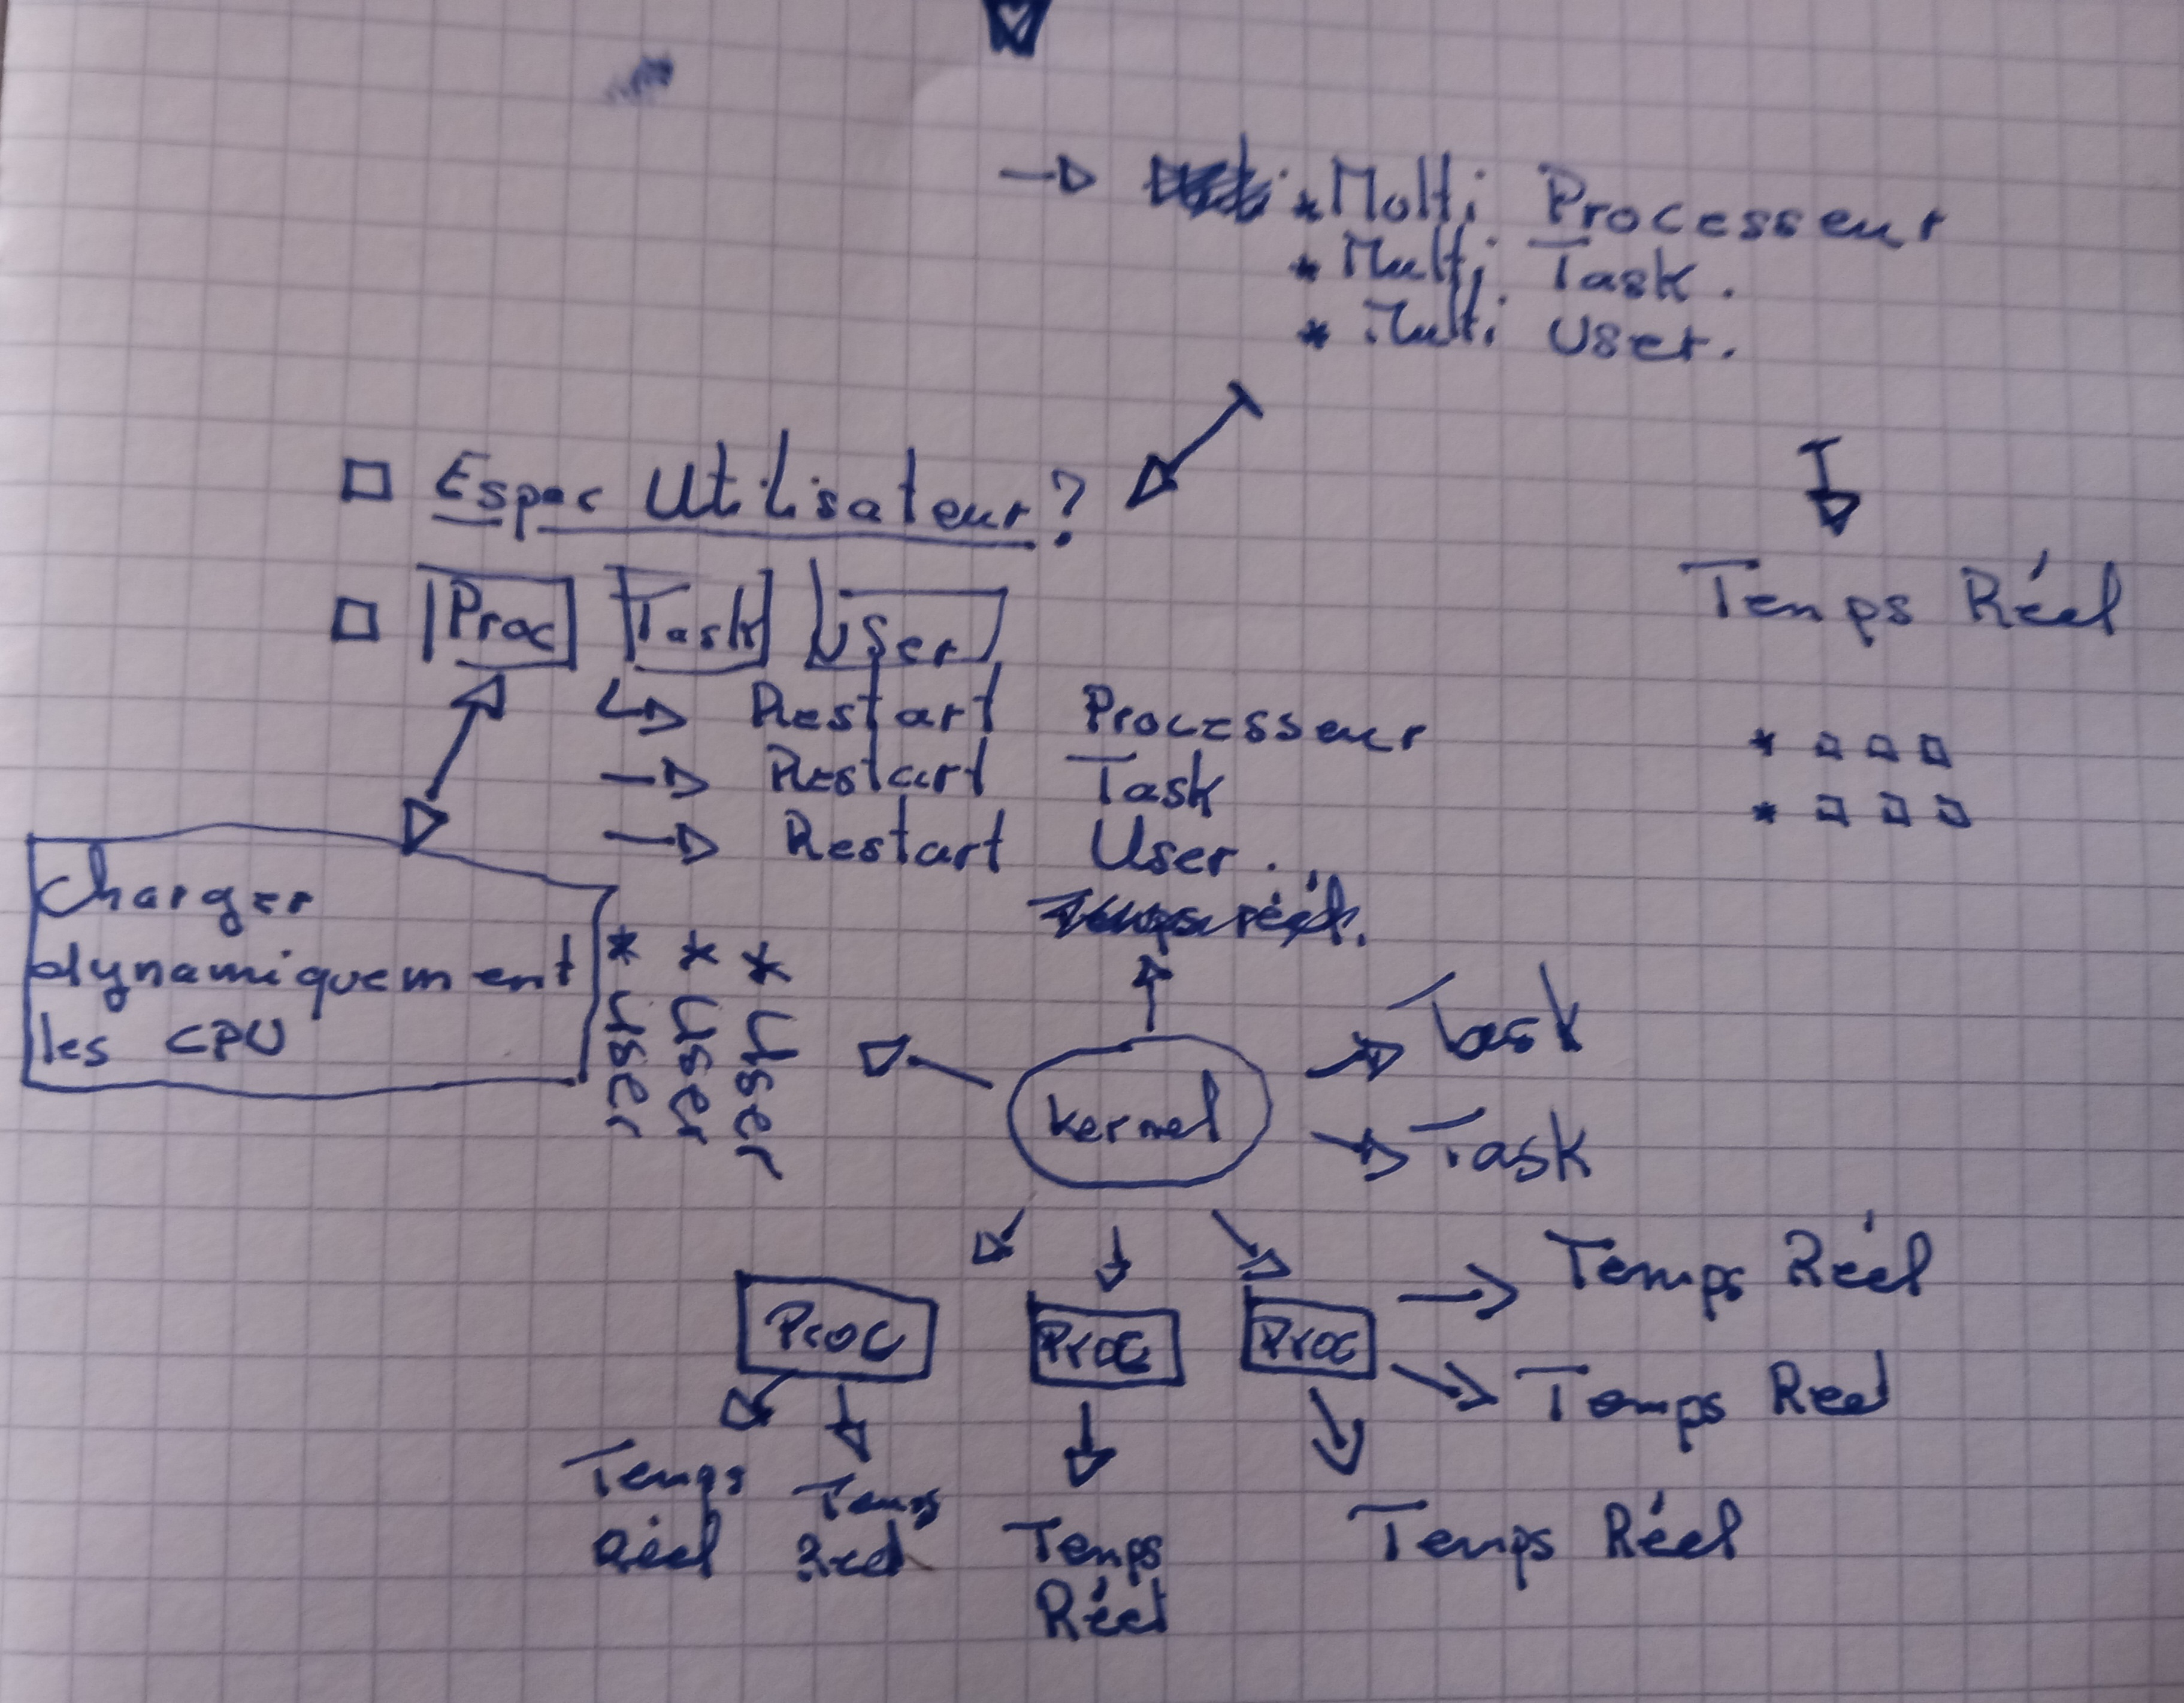 * Multi Processeur
* Multi Task.
* Multi User.
Espac Utilisateur?
Temps Réel
Proc Task User
Restart Processeur
Restart Task
Restart User.
Temps réel.
Charger
dynamiquement
les CPU
* User
* User
* User
Kernel
Task
Task
Proc
Proc
Proc
Temps Réel
Temps Réel
Temps
Réel
Temps
Réel
Temps
Réel
Temps Réel